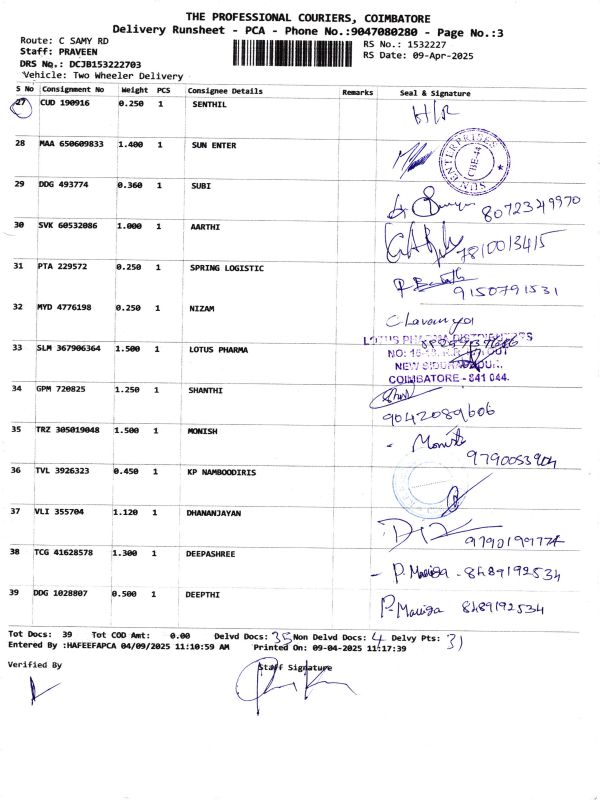 THE PROFESSIONAL COURIERS, COIMBATORE
Delivery Runsheet - PCA - Phone No.:9047080280 - Page No.:3
Route: C SAMY RD
Staff: PRAVEEN
RS No.: 1532227
DRS No.: DCJB153222703
RS Date: 09-Apr-2025
Vehicle: Two Wheeler Delivery
S No Consignment No Weight PCS Consignee Details Remarks Seal & Signature
27 CUD 190916 0.250 1 SENTHIL H/R
28 MAA 650609833 1.400 1 SUN ENTER
SUN ENTERPRISES CBE-44
29 DDG 493774 0.360 1 SUBI
8072349970
30 SVK 60532086 1.000 1 AARTHI
7810013415
31 PTA 229572 0.250 1 SPRING LOGISTIC
9150791531
32 MYD 4776198 0.250 1 NIZAM
33 SLM 367906364 1.500 1 LOTUS PHARMA
LOTUS PHARMA
NEW
COIMBATORE - 641 044.
34 GPM 720825 1.250 1 SHANTHI
9042089606
35 TRZ 305019048 1.500 1 MONISH
9790053904
36 TVL 3926323 0.450 1 KP NAMBOODIRIS
37 VLI 355704 1.120 1 DHANANJAYAN
9790199774
38 TCG 41628578 1.300 1 DEEPASHREE - P. 8489192534
39 DDG 1028807 0.500 1 DEEPTHI P. 8489192534
Tot Docs: 39 Tot COD Amt: 0.00 Delvd Docs: 35 Non Delvd Docs: 4 Delvy Pts: 31
Entered By :HAFEEFAPCA 04/09/2025 11:10:59 AM Printed On: 09-04-2025 11:17:39
Verified By Staff Signature